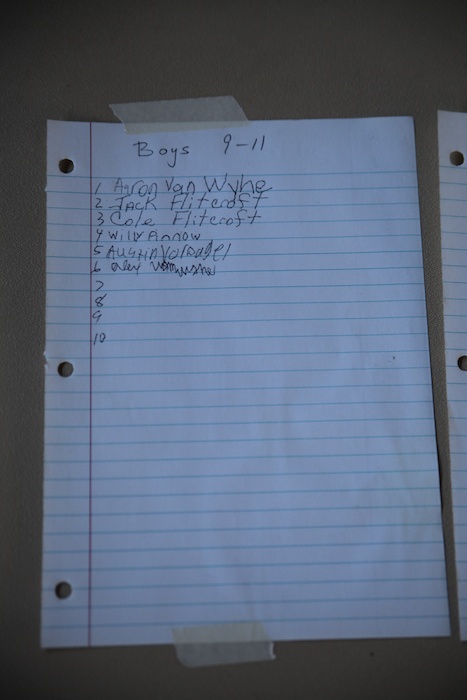 Boys 9-11
1 Ayron Van Wyhe
2 Jack Flitcroft
3 Cole Flitcroft
4 Willy Annow
5 Austin
6 Alex
7
8
9
10